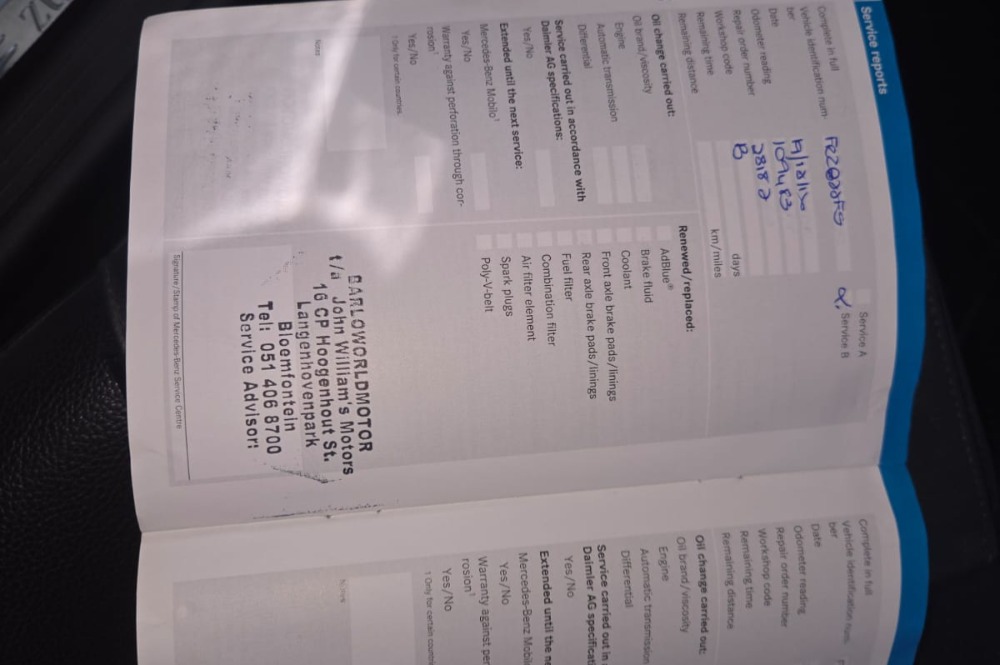 Service reports
Complete in full
Vehicle identification num-
ber
Date
Odometer reading
Repair order number
Workshop code
Remaining time
days
Remaining distance
km/miles
Service A
Service B
28182
B
Oil change carried out:
Oil brand/viscosity
Engine
Automatic transmission
Differential
Service carried out in accordance with
Daimler AG specifications:
Yes/No
Extended until the next service:
Mercedes-Benz Mobilo¹
Yes/No
Warranty against perforation through cor-
rosion¹
Yes/No
¹ Only for certain countries
Notes
Renewed/replaced:
AdBlue®
Brake fluid
Coolant
Front axle brake pads/linings
Rear axle brake pads/linings
Fuel filter
Combination filter
Air filter element
Spark plugs
Poly-V-belt
BARLOWORLDMOTOR
t/a John William's Motors
16 CP Hoogenhout St.
Langenhovenpark
Bloemfontein
Tel: 051 406 8700
Service Advisor:
Signature/Stamp of Mercedes-Benz Service Centre
Complete in full
Vehicle identification num-
ber
Date
Odometer reading
Repair order number
Workshop code
Remaining time
Remaining distance
Oil change carried out:
Oil brand/viscosity
Engine
Automatic transmission
Differential
Service carried out in
Daimler AG
Yes/No
Extended until the
Mercedes-Benz
Yes/No
Warranty against
rosion¹
Yes/No
¹ Only for certain
Notes